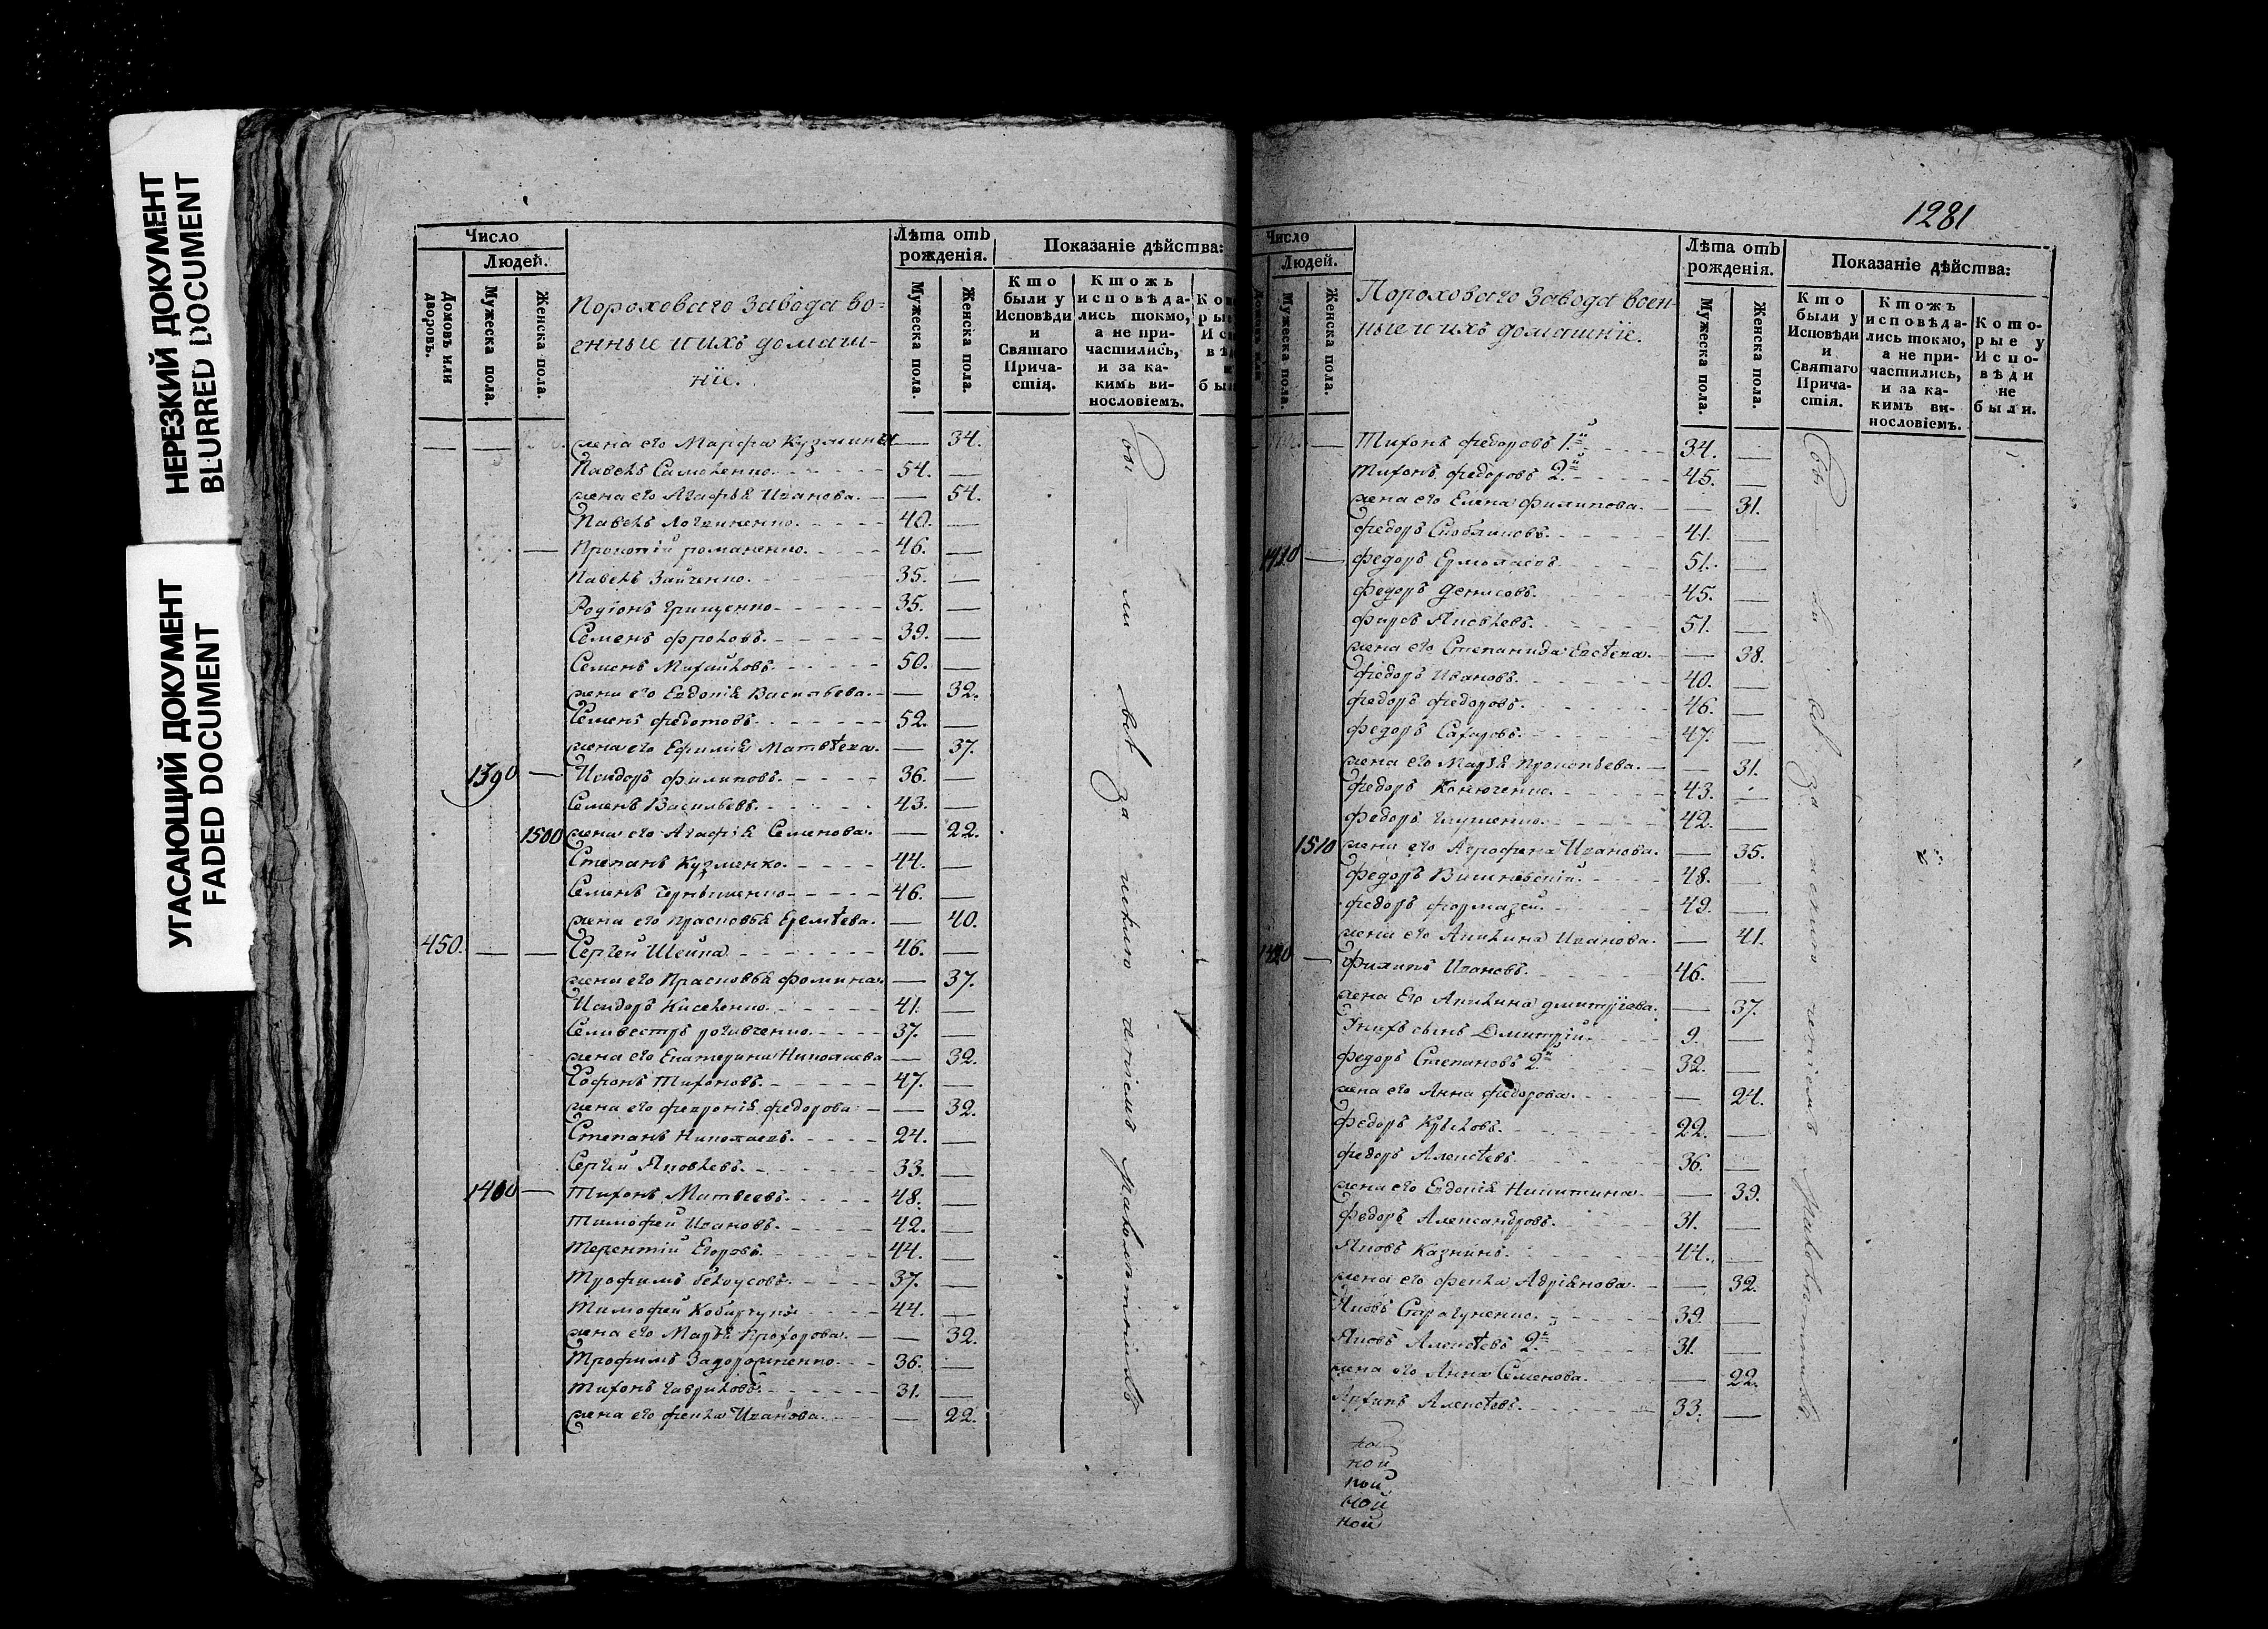 НЕРЕЗКИЙ ДОКУМЕНТ
BLURRED DOCUMENT
УГАСАЮЩИЙ ДОКУМЕНТ
FADED DOCUMENT
Число
Людей.
Домовъ или дворовъ.
Мужеска пола.
Женска пола.
Пороховаго Завода во=
енные и ихъ домашн-
нїе.
Лѣта отъ рожденія.
Мужеска пола.
Женска пола.
Показаніе дѣйства:
Кто были у Исповѣди и Святаго Причастія.
Ктожъ исповѣдались токмо, а не причастились, и за какимъ винословіемъ.
жена его Марфа Кузмина 34.
Павелъ Самоленко 54.
жена его Агафья Иванова. 54.
Павелъ Логвиненко. 40.
Прокопій романенко. 46.
Павелъ Зайченко. 35.
Родіонъ Грищенко 35.
Семенъ Фроловъ. 39.
Семенъ Михайловъ. 50.
жена его Евдокія Васильева. 32.
Семенъ Федотовъ. 52.
жена его Ефимія Матвѣева. 37.
1390 Исидоръ Филиповъ. 36.
Семенъ Васильевъ. 43.
1500 жена его Агафія Семенова. 22.
Степанъ Кузменко. 44.
Семенъ Чернышенко 46.
жена его Прасковья Еремѣева. 40.
450. Сергей Шейка 46.
жена его Прасковья Фомина. 37.
Исидоръ Киселенко. 41.
Селивестръ 37.
жена его Екатерина Николаева 32.
Софонъ Тихоновъ. 47.
жена его Февронія Федорова 32.
Степанъ Николаевъ. 24.
Сергей Яковлевъ. 33.
1400 Тихонъ Матвеевъ. 48.
Тимофей Ивановъ. 42.
Терентій Егоровъ. 44.
Трофимъ белоусовъ. 37.
Тимофей 44.
жена его Марья Прохорова. 32.
Трофимъ Задорожненко. 36.
Тихонъ Гавриловъ. 31.
жена его Фекла Иванова. 22.
1281
Число
Людей.
Мужеска пола.
Женска пола.
Пороховаго Завода воен-
ные и ихъ домашнїе.
Лѣта отъ рожденія.
Мужеска пола.
Женска пола.
Показаніе дѣйства:
Кто были у Исповѣди и Святаго Причастія.
Ктожъ исповѣдались токмо, а не причастились, и за какимъ винословіемъ.
Которые у Исповѣди не были.
Тихонъ Федоровъ 1й 34.
Тихонъ Федоровъ 2й 45.
жена его Елена Филипова. 31.
Федоръ 41.
1410 Федоръ Ермолаевъ 51.
Федоръ Денисовъ. 45.
Фирсъ Яковлевъ. 51.
жена его Степанида 38.
Федоръ Ивановъ. 40.
Федоръ Федоровъ. 46.
Федоръ Сахаровъ. 47.
жена его Марья Прокопьева. 31.
Федоръ Конюченко. 43.
Федоръ Глущенко. 42.
1510 жена его Агрофена Иванова. 35.
Федоръ Вишневскій. 48.
Федоръ 49.
жена его Акилина Иванова. 41.
1420 Филипъ Ивановъ. 46.
жена Его Акилина дмитріева. 37.
У нихъ сынъ Дмитрій. 9.
Федоръ Степановъ 2й 32.
жена его Анна Федорова. 24.
Федоръ 22.
Федоръ Алексѣевъ. 36.
жена его Евдокія Никитина. 39.
Федоръ Александровъ. 31.
Яковъ Казкинъ. 44.
жена его Фекла Адріянова. 32.
Яковъ 39
Яковъ Алексѣевъ 2й 31.
жена его Анна Семенова. 22.
Архипъ Алексѣевъ. 33.
ной
ной
ной
ной